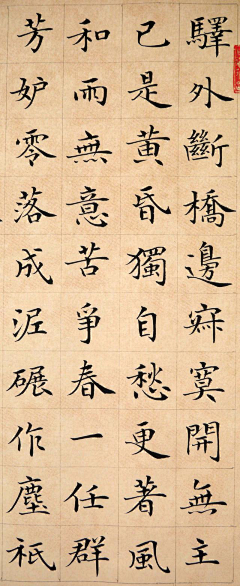 驛外斷橋邊寂寞開無主
已是黄昏獨自愁更著風
和雨無意苦爭春一任群
芳妒零落成泥碾作塵祇